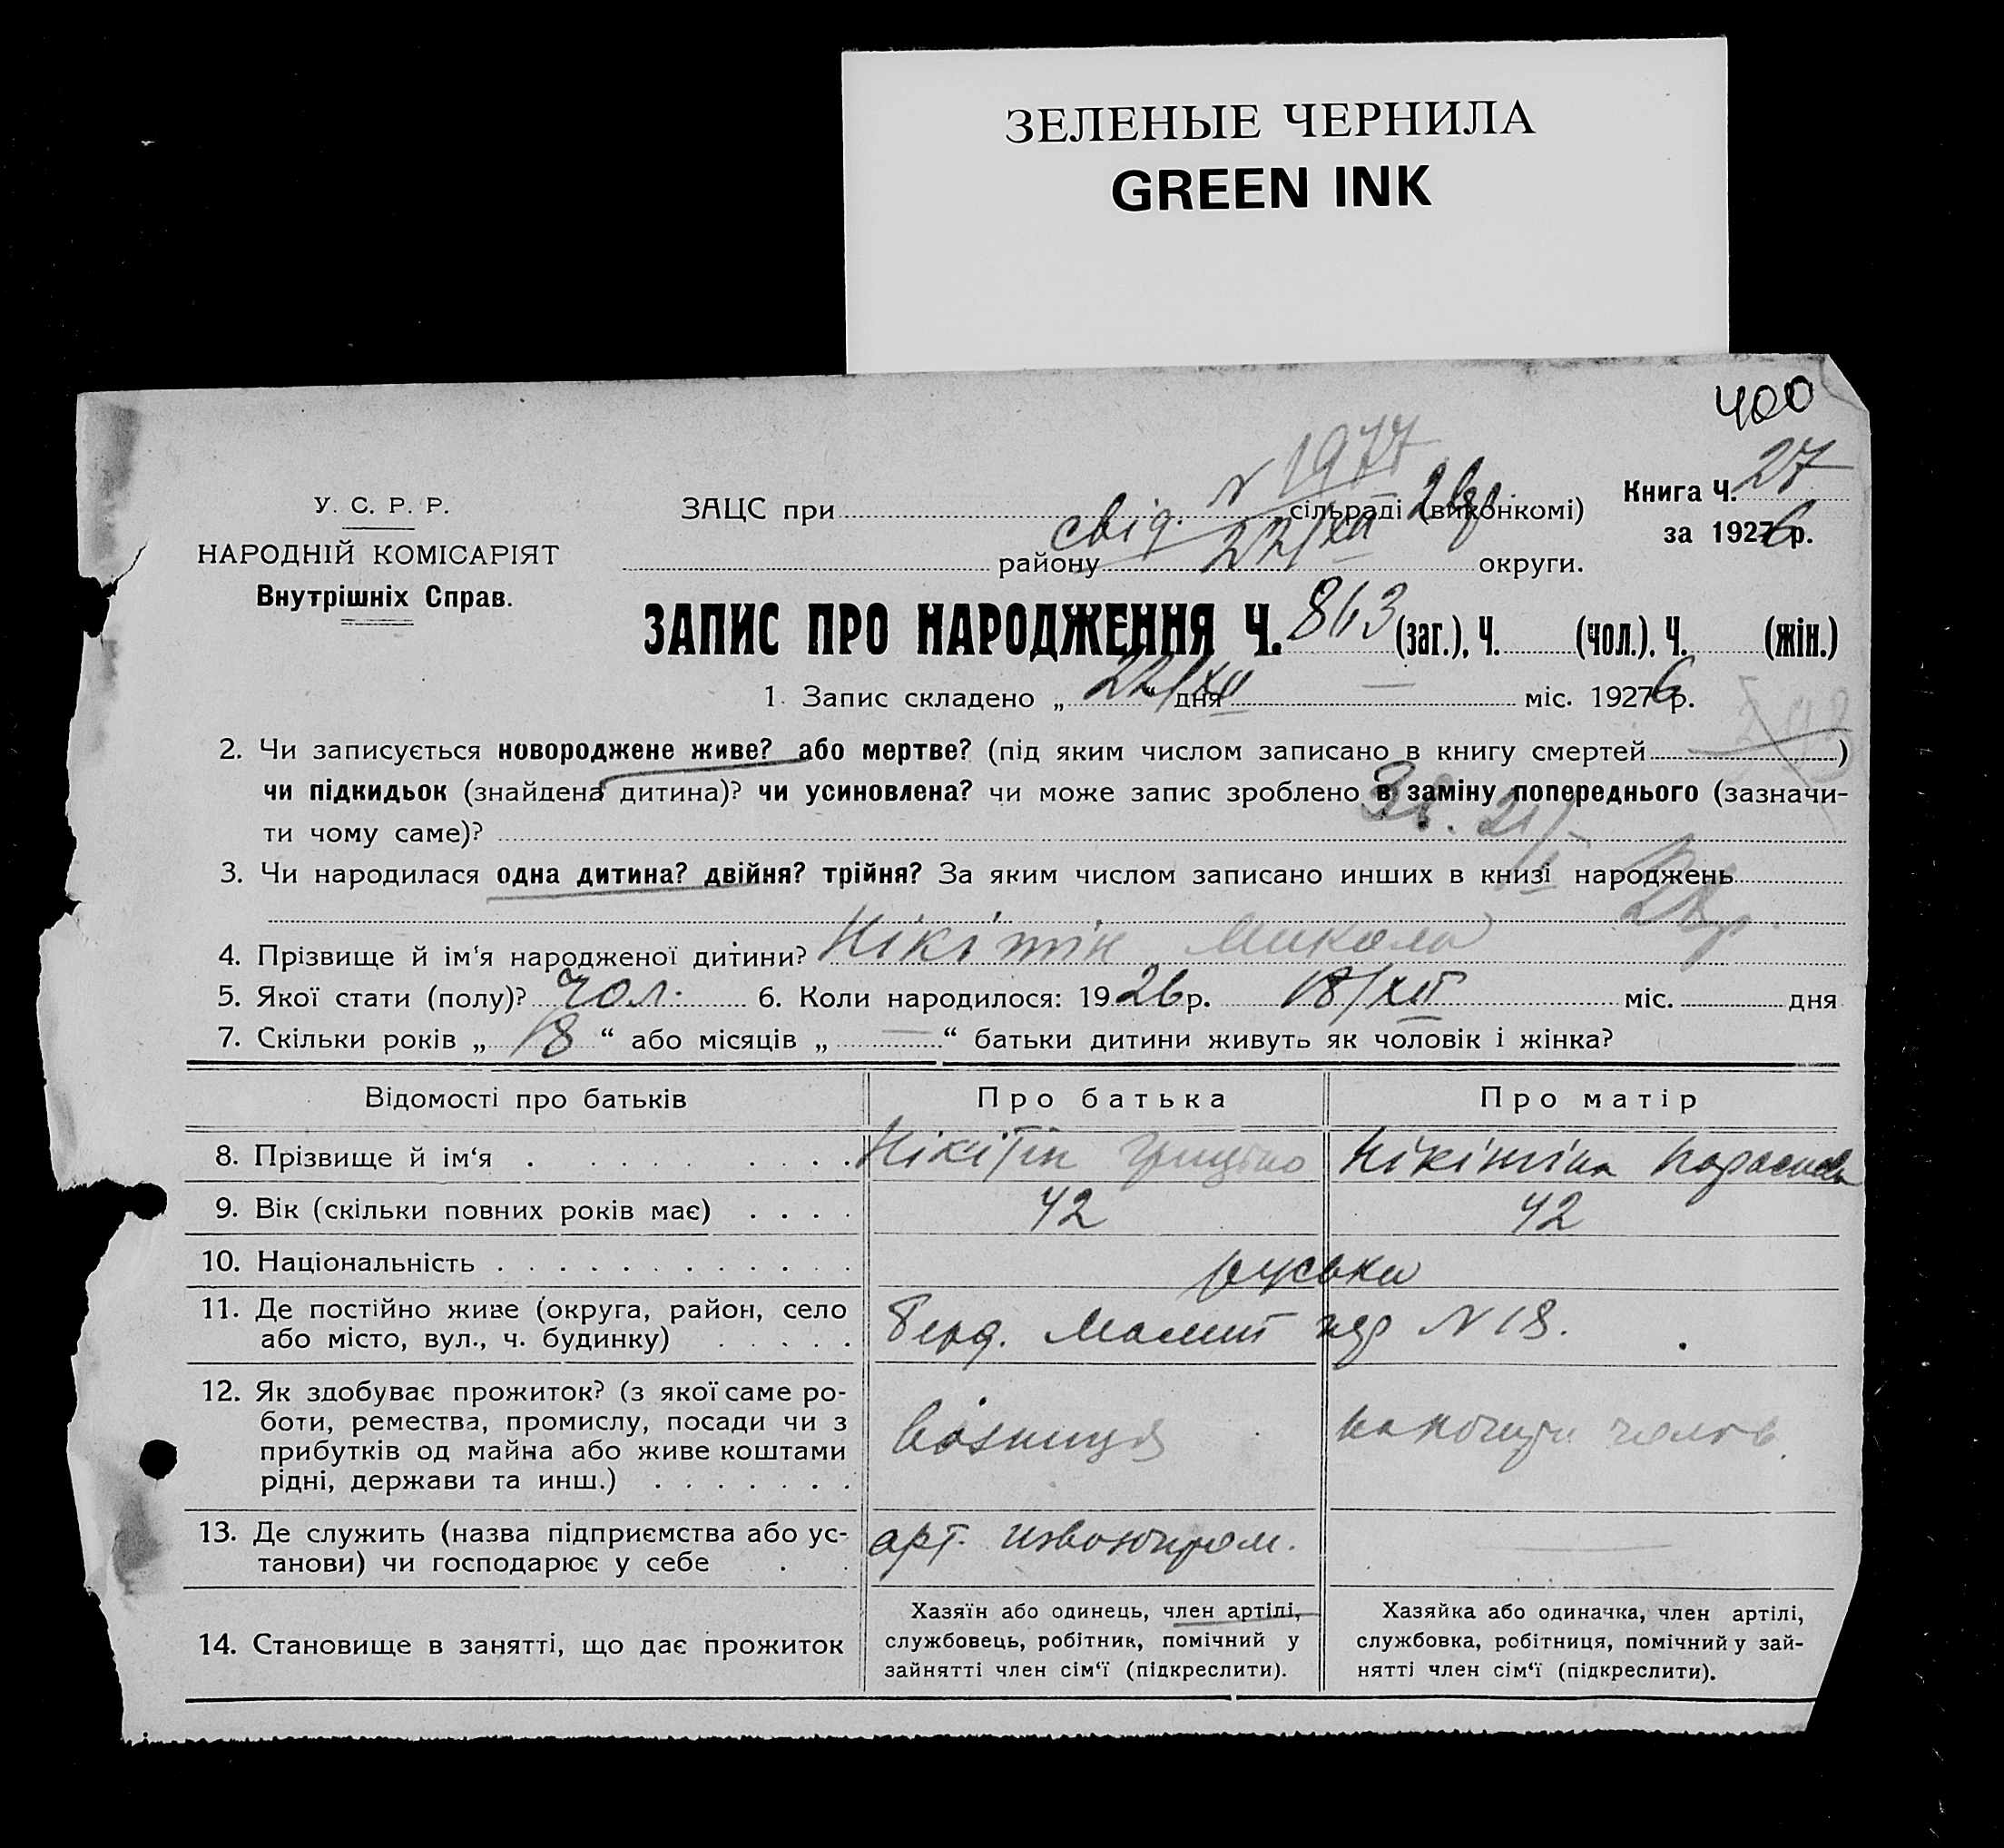 ЗЕЛЕНЫЕ ЧЕРНИЛА
GREEN INK
400
N 1977
Книга Ч. 27
У. С. Р. Р.
ЗАЦС при сільраді (виконкомі)
свід. 22/XII
за 1926 р.
НАРОДНІЙ КОМІСАРІЯТ
району округи.
Внутрішніх Справ.
ЗАПИС ПРО НАРОДЖЕННЯ Ч. 863 (заг.), Ч. (чол.), Ч. (жін.)
1. Запис складено „ 22/XII " дня — міс. 1926 р.
2. Чи записується новороджене живе? або мертве? (під яким числом записано в книгу смертей )
чи підкидьок (знайдена дитина)? чи усиновлена? чи може запис зроблено в заміну попереднього (зазначи-
ти чому саме)?
3. Чи народилася одна дитина? двійня? трійня? За яким числом записано инших в книзі народжень
4. Прізвище й ім‘я народженої дитини? Нікітін Микола
5. Якої стати (полу)? чол. 6. Коли народилося: 1926 р. 18/XII міс. дня
7. Скільки років „ 18 “ або місяців „ — “ батьки дитини живуть як чоловік і жінка?
Відомості про батьків Про батька Про матір
8. Прізвище й ім‘я Нікітін Грицько Нікітіна Параска
9. Вік (скільки повних років має) 42 42
10. Національність руська
11. Де постійно живе (округа, район, село
або місто, вул., ч. будинку) N 18.
12. Як здобуває прожиток? (з якої саме ро-
боти, ремества, промислу, посади чи з
прибутків од майна або живе коштами
рідні, держави та инш.)
візниця
на кошти чолов.
13. Де служить (назва підприємства або ус-
танови) чи господарює у себе
арт. извозпром.
14. Становище в занятті, що дає прожиток
Хазяїн або одинець, член артілі,
службовець, робітник, помічний у
зайнятті член сім‘ї (підкреслити).
Хазяйка або одиначка, член артілі,
службовка, робітниця, помічний у зай-
нятті член сім‘ї (підкреслити).